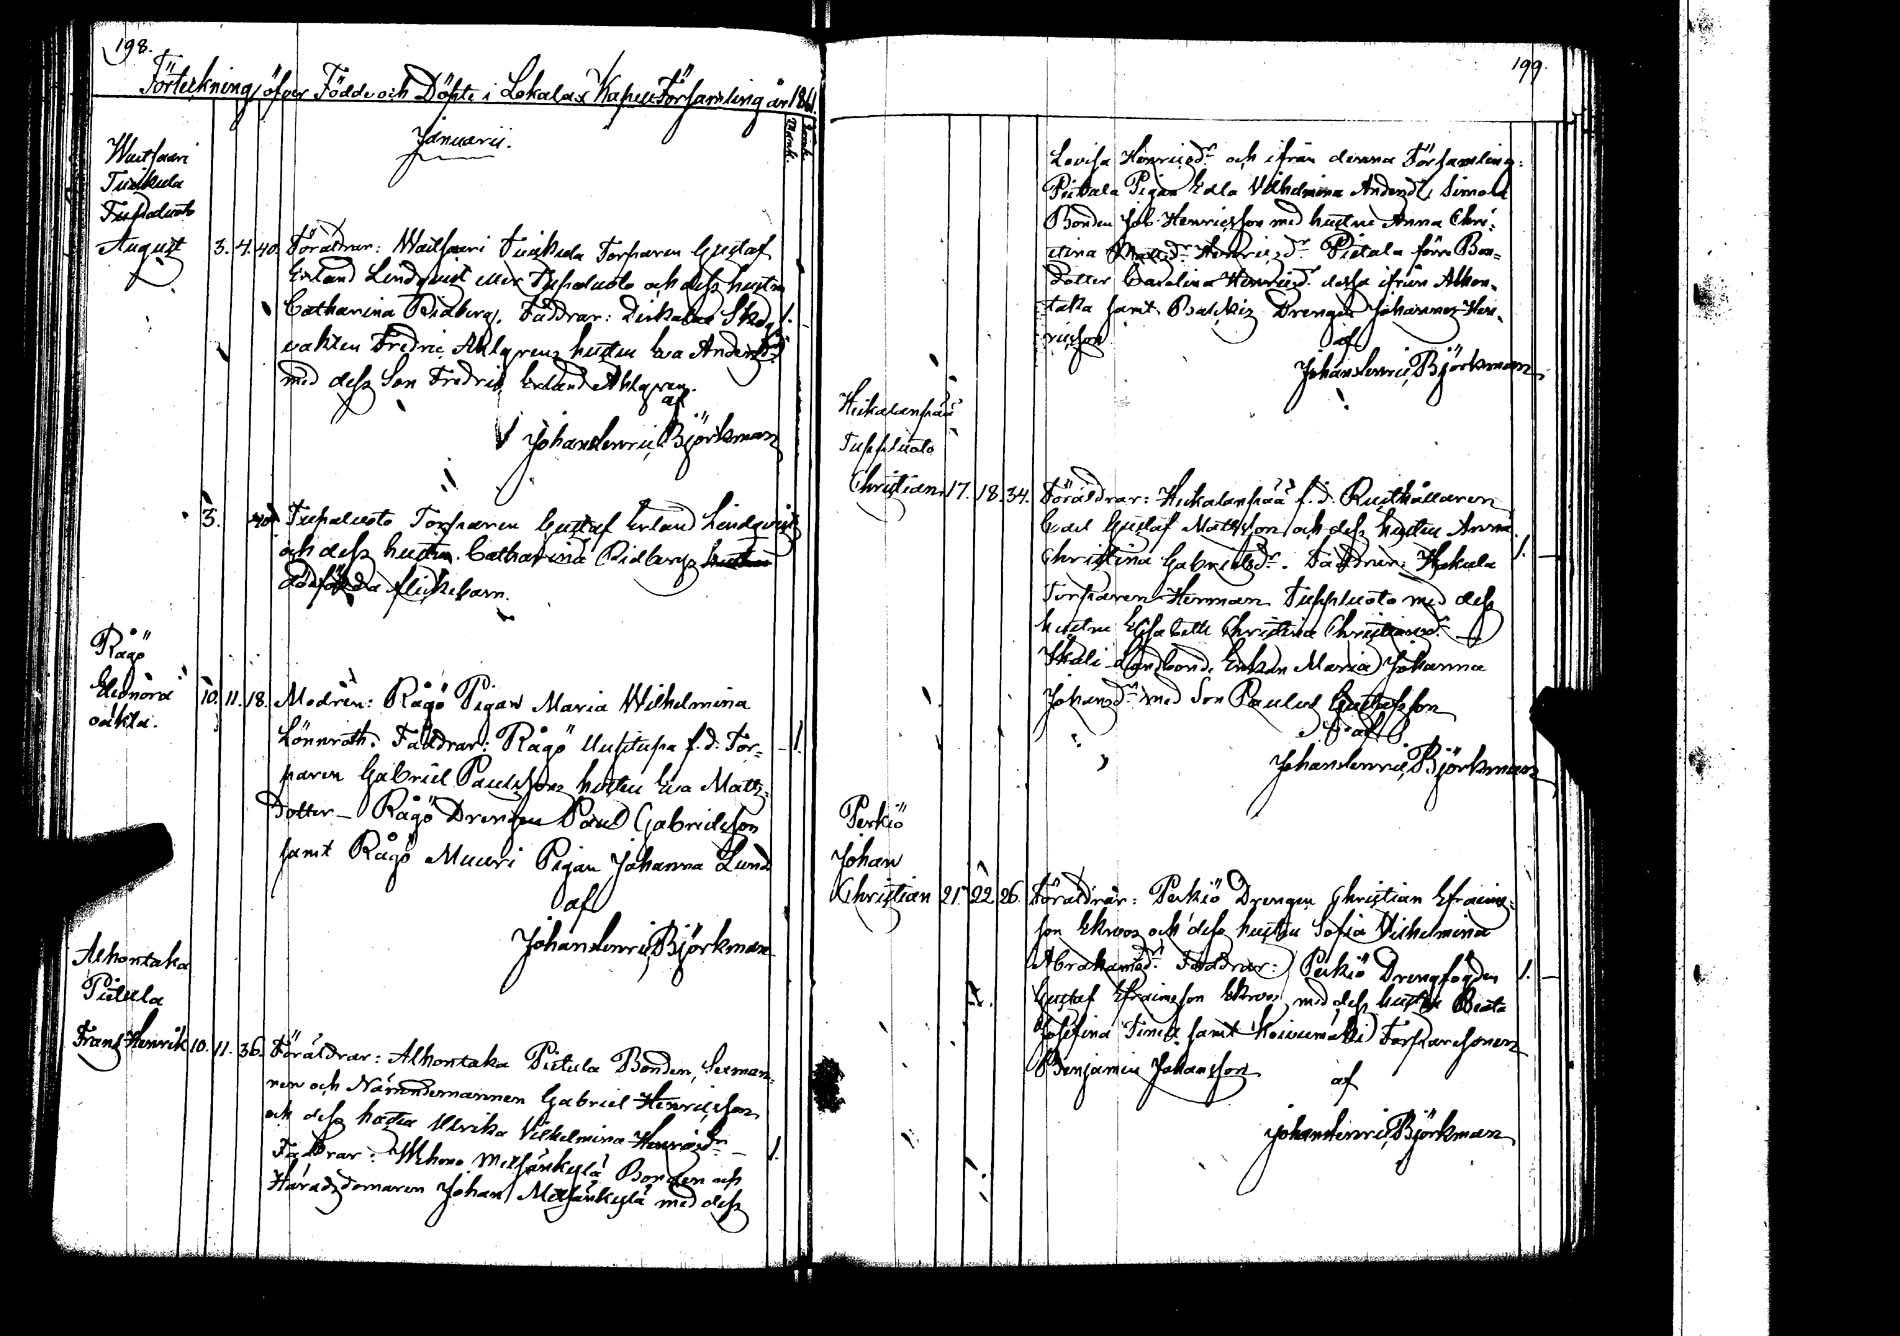 198.
Förteckning öfver Födde och Döpte i Lokalax Kapell Församling år 1861.
Januarii.
August 3. 4. 40. Föräldrar: Torparen Gustaf
Erland Lindqvist eller och dess hustru
Catharina Ridberg. Faddrar: Skogs
vakten Fredric Ahlgrens hustru Eva Andersdr
med dess Son Fredric Erland Ahlgren.
af
Johan Henric Björkman
3. 40. Torparen Gustaf Erland Lindqvist
och dess hustru Catharina Ridbergs
dödfödda flickebarn.
Rågö
Eleonora 10. 11. 18. Modren: Rågö Pigan Maria Wilhelmina
oäkta.
Lönnroth. Faddrar: Rågö Uusitupa f.d. Tor-
paren Gabriel Paulssons hustru Eva Matts-
dotter – Rågö Drengen Paul Gabrielsson
samt Rågö Muuri Pigan Johanna Lund
af
Johan Henric Björkman
Alhontaka
Pietula
Frans Henrik 10. 11. 36. Föräldrar: Alhontaka Pietula Bonden, Sexman-
nen och Nämndemannen Gabriel Henricsson
och dess hustru Ulrika Vilhelmina Henricsdr –
Faddrar: Bonden och
Häradsdomaren Johan med dess
199.
Lovisa Henricsdr och ifrån denna Församling:
Pigan Edla Vilhelmina Andersdr Simola
Bonden Job Henricsson med hustru Anna Chri-
stina Henricsdr Pietala förre Bon-
dotter Carolina Henricsdr dessa ifrån Alhon-
taka samt Drengen Johannes Hen-
ricsson
af
Johan Henric Björkman
Christian 17. 18. 34. Föräldrar: f.d. Rusthållaren
Carl Gustaf Mattsson och dess hustru Anna
Christina Gabrielsdr. Faddrar:
Torparen Herman med dess
hustru Elisabeth Christina Christiansdr –
Landbonde Enkan Maria Johanna
Johansdr med Son Paulus Gustafsson
af
Johan Henric Björkman
Perkiö
Johan
Christian 21. 22. 26. Föräldrar: Perkiö Drengen Christian Efraims-
son Ekroos och dess hustru Sofia Vilhelmina
Abrahamsdr. Faddrar: Perkiö Drengfogden
Gustaf Efraimsson Ekroos med dess hustru Beata
Josefina samt Koivumäki Torparesonen
Benjamin Johansson
af
Johan Henric Björkman